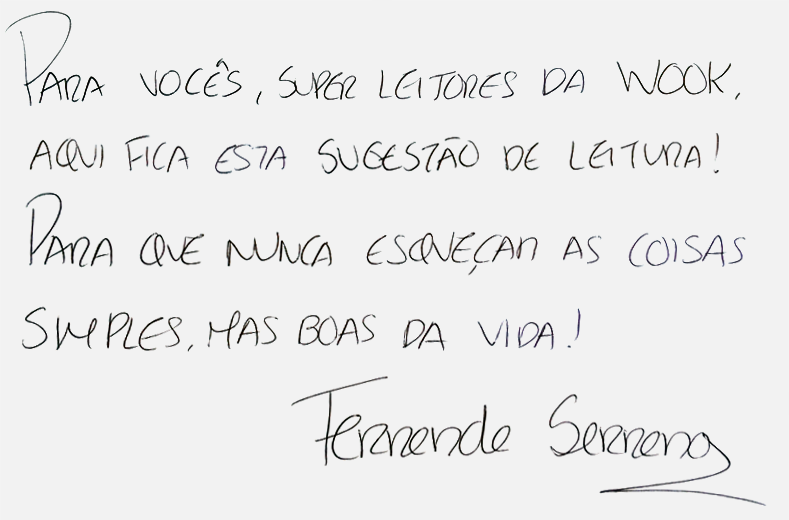 PARA VOCÊS, SUPER LEITORES DA WOOK,
AQUI FICA ESTA SUGESTÃO DE LEITURA!
PARA QUE NUNCA ESQUEÇAM AS COISAS
SIMPLES, MAS BOAS DA VIDA!
Fernanda Serrano